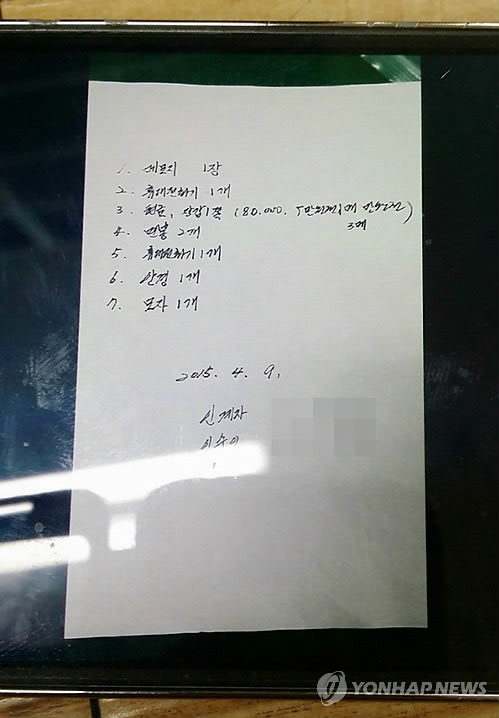 1. 메모지 1장
2. 휴대전화기 1개
3. 현금, 장갑1켤 (80,000. 5만원권1매 만원권
3매)
4. 면봉 2개
5. 휴대전화기 1개
6. 안경 1개
7. 모자 1개
2015. 4. 9.
인계자
YONHAP NEWS